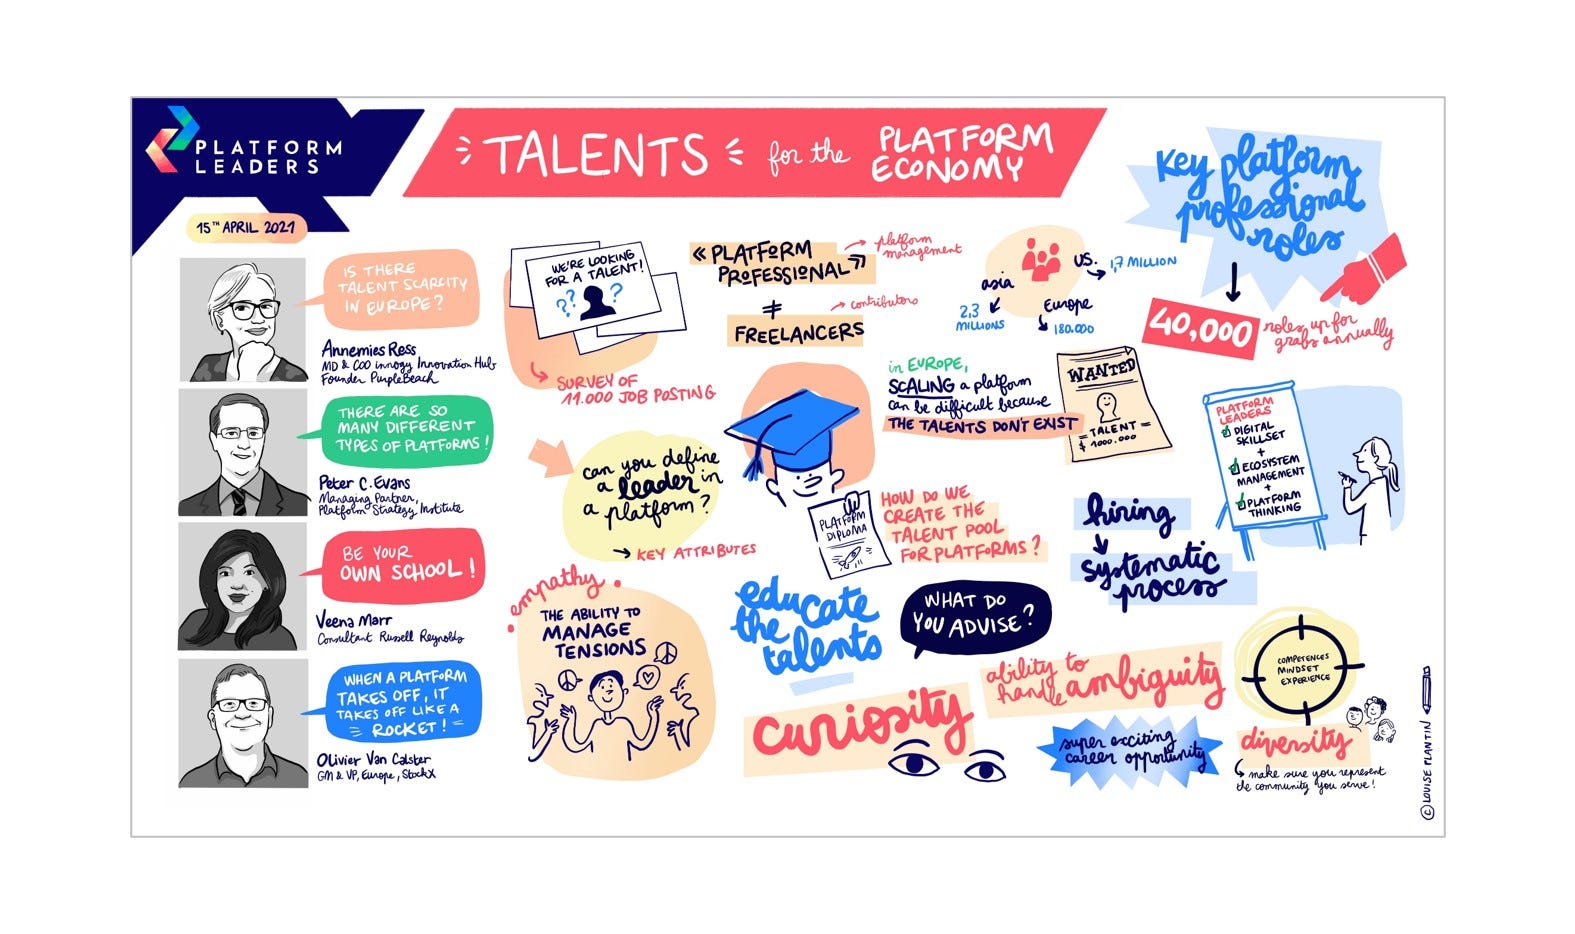 PLATFORM
LEADERS
TALENTS for the PLATFORM
ECONOMY
15TH APRIL 2021
IS THERE
TALENT SCARCITY
IN EUROPE?
Annemies Ress
MD & COO innogy Innovation Hub
Founder PurpleBeach
THERE ARE SO
MANY DIFFERENT
TYPES OF PLATFORMS!
Peter C. Evans
Managing Partner,
Platform Strategy Institute
BE YOUR
OWN SCHOOL!
Veena Marr
Consultant Russell Reynolds
WHEN A PLATFORM
TAKES OFF, IT
TAKES OFF LIKE A
ROCKET!
Olivier Van Calster
GM & VP, Europe, StockX
WE'RE LOOKING
FOR A TALENT!
?? ?
SURVEY OF
11.000 JOB POSTING
« PLATFORM
PROFESSIONAL »
platform
management
≠
contributors
FREELANCERS
asia
2,3
MILLIONS
US.
1,7 MILLION
Europe
180.000
Key platform
professional
roles
40,000 roles up for
grabs annually
can you define
a leader in
a platform?
KEY ATTRIBUTES
empathy
THE ABILITY TO
MANAGE
TENSIONS
in EUROPE,
SCALING a platform
can be difficult because
THE TALENTS DON'T EXIST
WANTED
TALENT
$ 1000.000
PLATFORM
DIPLOMA
HOW DO WE
CREATE THE
TALENT POOL
FOR PLATFORMS?
educate
the
talents
WHAT DO
YOU ADVISE?
hiring
systematic
process
PLATFORM
LEADERS
DIGITAL
SKILLSET
+
ECOSYSTEM
MANAGEMENT
+
PLATFORM
THINKING
curiosity
ability to
handle ambiguity
super exciting
career opportunity
COMPETENCES
MINDSET
EXPERIENCE
diversity
make sure you represent
the community you serve!
© LOUISE PLANTIN